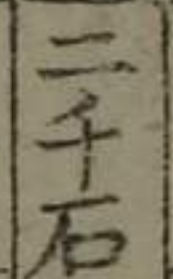 二千石